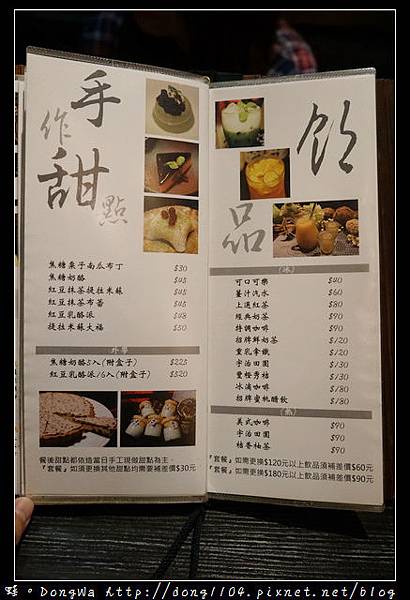 手作甜點
焦糖栗子南瓜布丁 $30
焦糖奶酪 $45
紅豆抹茶提拉米蘇 $45
紅豆抹茶布蕾 $45
紅豆乳酪派 $48
提拉米蘇大福 $50
外帶
焦糖奶酪5入(附盒子) $225
紅豆乳酪派/6入(附盒子) $320
餐後甜點都依造當日手工現做甜點為主。
『套餐』如須更換其他甜點均需要補差價$30元
飲品
(冰)
可口可樂 $40
薑汁汽水 $60
上選紅茶 $80
經典奶茶 $90
特調咖啡 $90
招牌鮮奶茶 $/20
薰乳拿鐵 $/20
宇治田園 $/30
豐橙秀桔 $/30
冰滴咖啡 $/80
招牌蜜桃醋飲 $/80
(熱)
美式咖啡 $90
宇治田園 $90
桔香柚茶 $90
『套餐』如需更換$120元以上飲品須補差價$60元
『套餐』如需更換$180元以上飲品須補差價$90元
蛙。DongWa http://dong1104.pixnet.net/blog